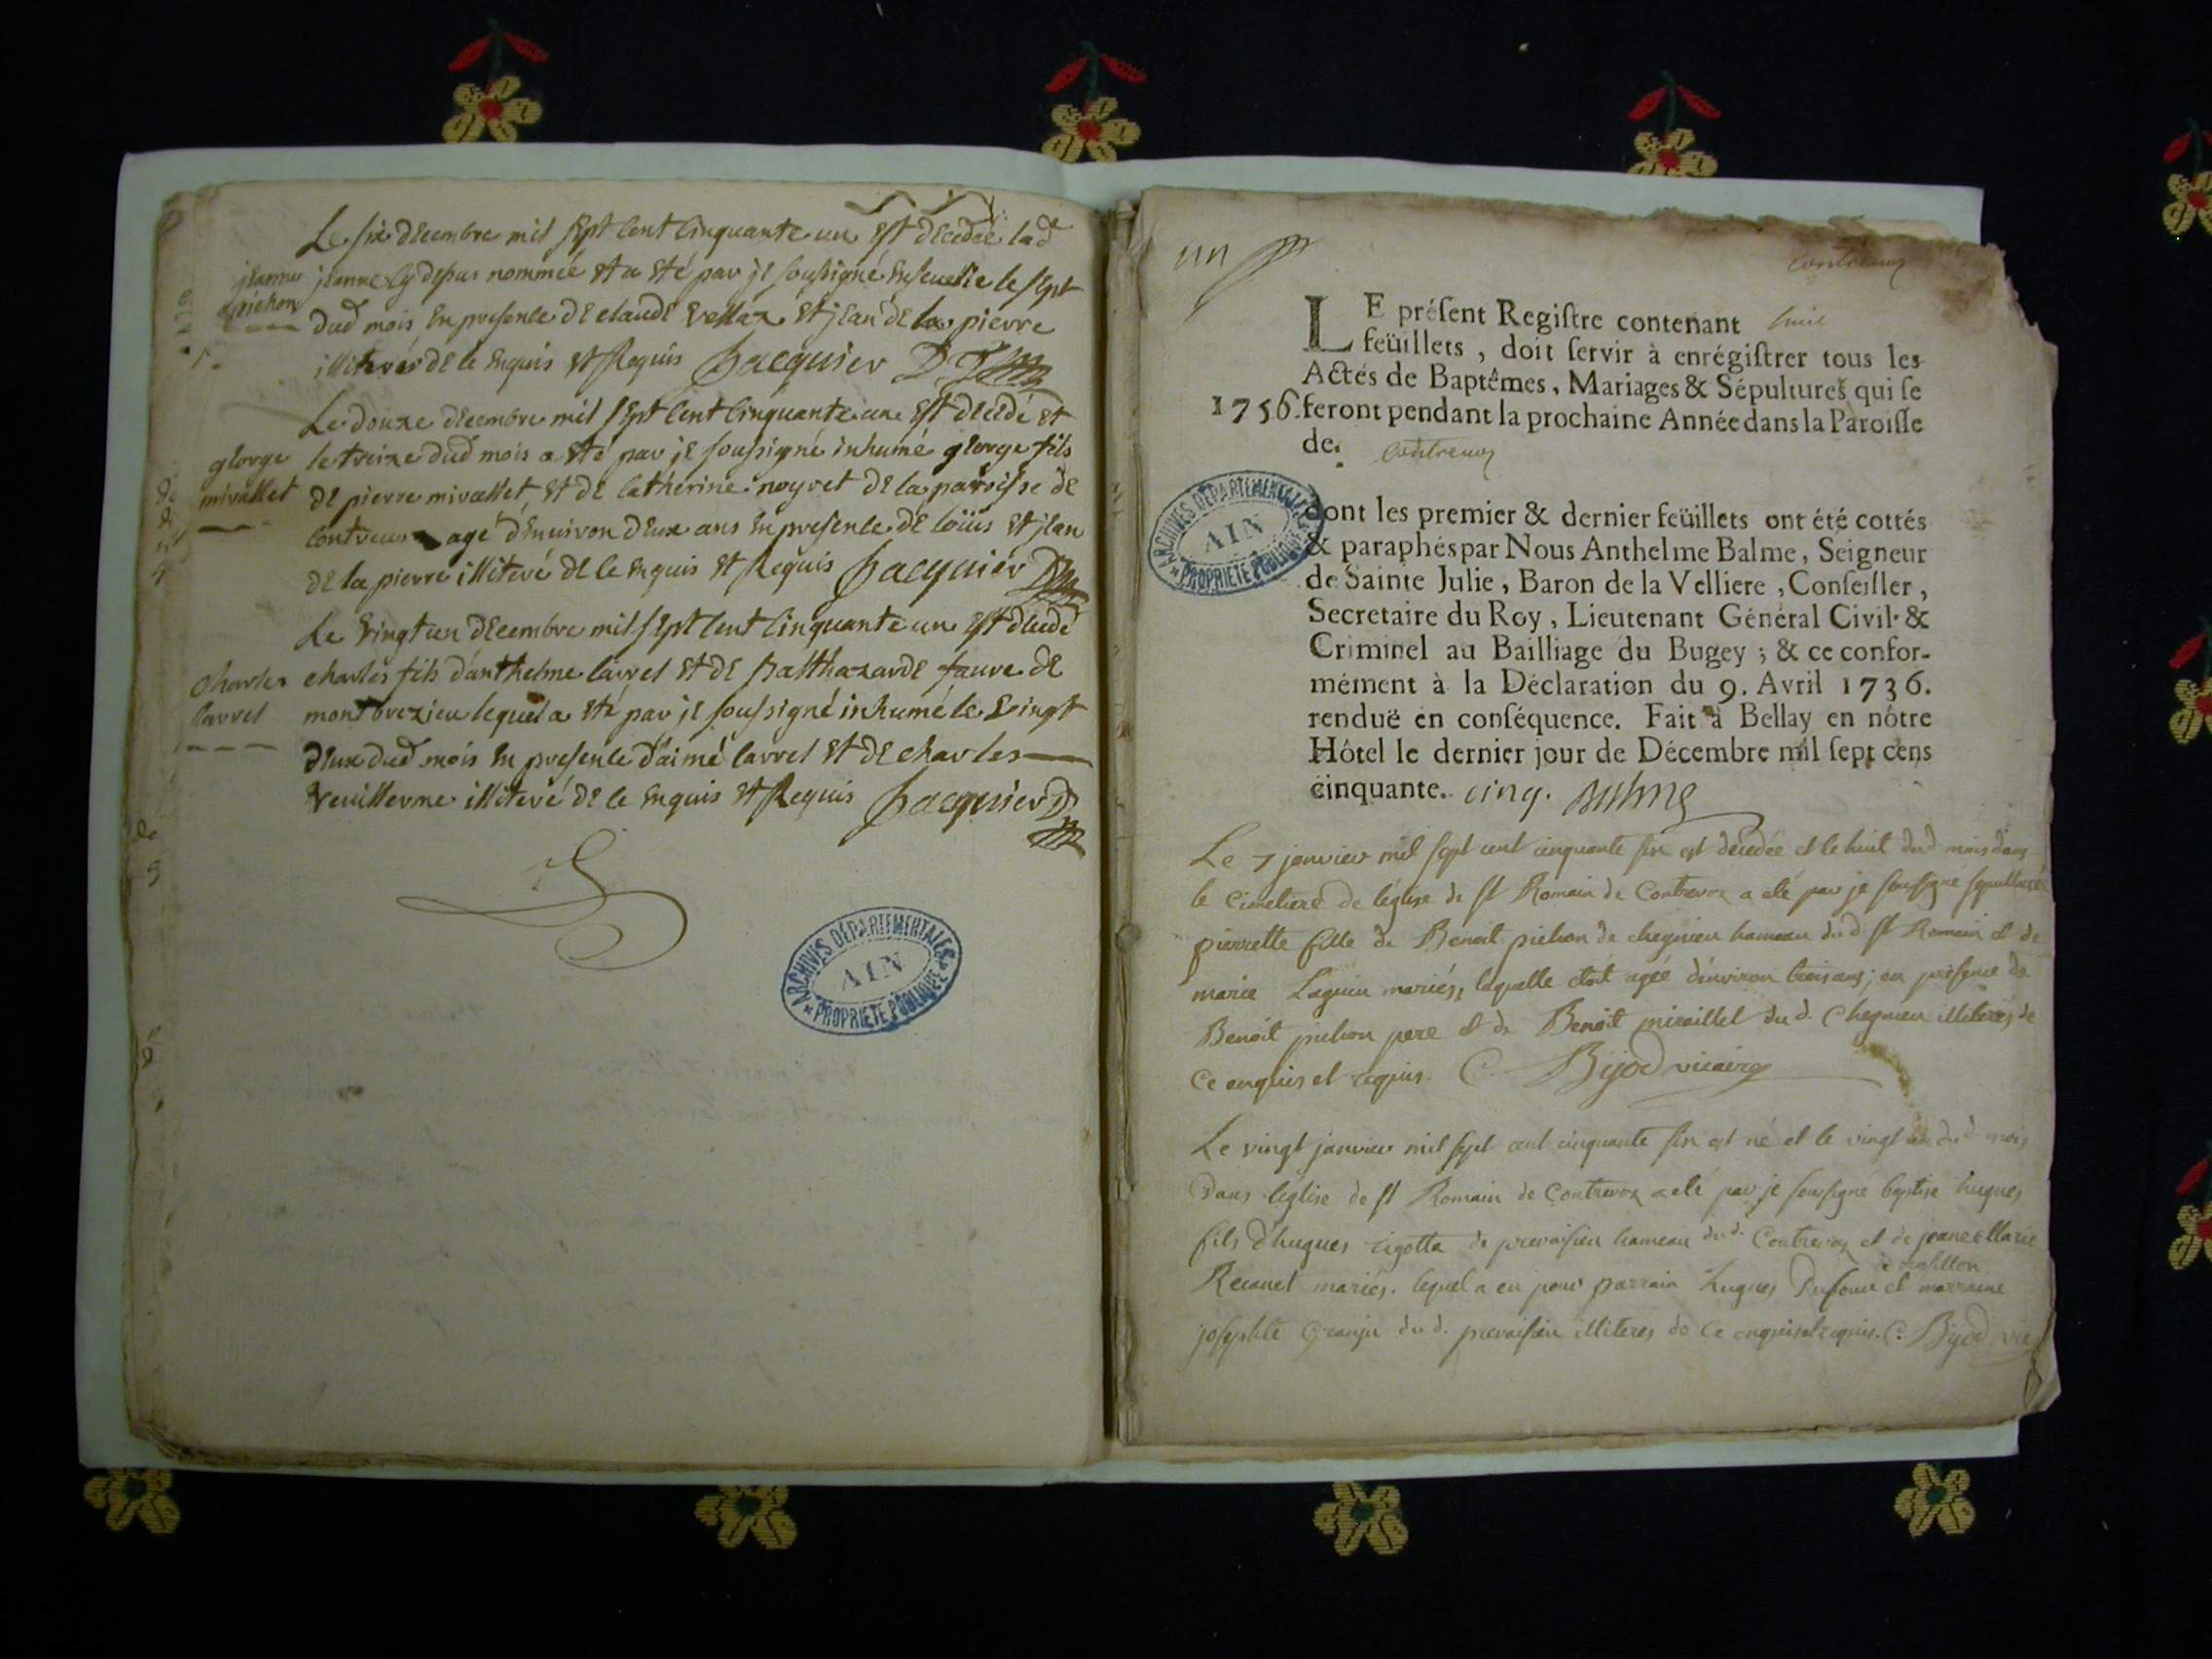 Le six decembre mil sept cent cinquante un est decedée lad^e
jeanne pichon
jeanne cy dessus nommée et a été par je soussigné ensevelie le sept
dud mois en presence de claude vettaz et jean de la pierre
illiterés de ce enquis et Requis Jacquier
Le douze decembre mil sept cent cinquante un est decedé et
george mirallet
le treize dud mois a été par je soussigné inhumé george fils
de pierre mirallet et de catherine noyret de la paroisse de
contrevos agé d'environ deux ans en presence de loüis et jean
de la pierre illiteré de ce enquis et Requis Jacquier
Le vingt un decembre mil sept cent cinquante un est decedé
charles carrel
charles fils d'anthelme carrel et de Balthazarde faure de
montbrezieu lequel a été par je soussigné inhumé le vingt
deux dud mois en presence d'aimé carrel et de charles
veuillerme illiteré de ce enquis et Requis Jacquier
ARCHIVES DÉPARTEMENTALES
AIN
PROPRIÉTÉ PUBLIQUE
un
Contrevoz
LE préſent Regiſtre contenant huit
feüillets, doit ſervir à enrégiſtrer tous les
Actés de Baptêmes, Mariages & Sépultures qui ſe
1756. feront pendant la prochaine Année dans la Paroiſſe
de. Contrevoz
ARCHIVES DÉPARTEMENTALES
AIN
PROPRIÉTÉ PUBLIQUE
dont les premier & dernier feüillets ont été cottés
& paraphés par Nous Anthelme Balme, Seigneur
de Sainte Julie, Baron de la Velliere, Conſeiller,
Secretaire du Roy, Lieutenant Général Civil &
Criminel au Bailliage du Bugey ; & ce confor-
mément à la Déclaration du 9. Avril 1736.
renduë en conſéquence. Fait à Bellay en nôtre
Hôtel le dernier jour de Décembre mil ſept cens
cinquante. cinq. Balme
Le 7 janvier mil sept cent cinquante six est decedée et le huit dud mois dans
le Cimetiere de léglise de st Romain de Contrevoz a eté par je soussigné sepulturée
pierrette fille de Benoit pichon de chegnieu hameau du d. st Romain et de
marie Laguin mariés, laquelle etoit agée d'environ trois ans; en présence de
Benoit pichon pere et de Benoit miraillet du d. Chegnieu illiteres de
Ce enquis et requis. C. Bijod vicaire
Le vingt janvier mil sept cent cinquante six est né et le vingt un dud mois
Dans léglise de st Romain de Contrevoz a eté par je soussigné baptisé hugues
fils d'hugues rigotta de prevaisieu hameau du d. Contrevoz et de jeane Marie
Recanet mariés. lequel a eu pour parrain hugues Dufour de chatillon et marraine
josephte du d. prevaisieu illiteres de ce enquis et requis. C. Bijod vic